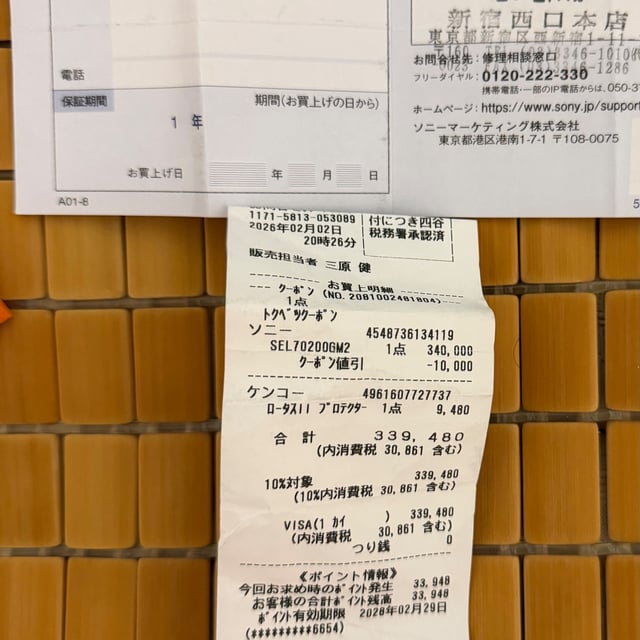 新宿西口本店
東京都新宿区西新宿1-11-
〒160 TEL (03)3346-1010(代
0023 FAX (03)3346-1286
お問合せ先:修理相談窓口
フリーダイヤル:0120-222-330
携帯電話・一部のIP電話からは、050-3
ホームページ:https://www.sony.jp/support
ソニーマーケティング株式会社
東京都港区港南1-7-1 〒108-0075
電話
保証期間
期間(お買上げの日から)
1 年
お買上げ日 年 月 日
A01-8
5
1171-5813-053089
2026年02月02日
20時26分
付につき四谷
税務署承認済
販売担当者 三原 健
お買上明細
クーポン (NO. 2081002481804)
1点
トクベツクーポン
ソニー 4548736134119
SEL70200GM2 1点 340,000
クーポン値引 -10,000
ケンコー 4961607727737
ロータスII プロテクター 1点 9,480
合 計 339,480
(内消費税 30,861 含む)
10%対象 339,480
(10%内消費税 30,861 含む)
VISA(1 カイ ) 339,480
(内消費税 30,861 含む)
つり銭 0
《ポイント情報》
今回お求め時のポイント発生 33,948
お客様の合計ポイント残高 33,948
ポイント有効期限 2028年02月29日
(*********6654)